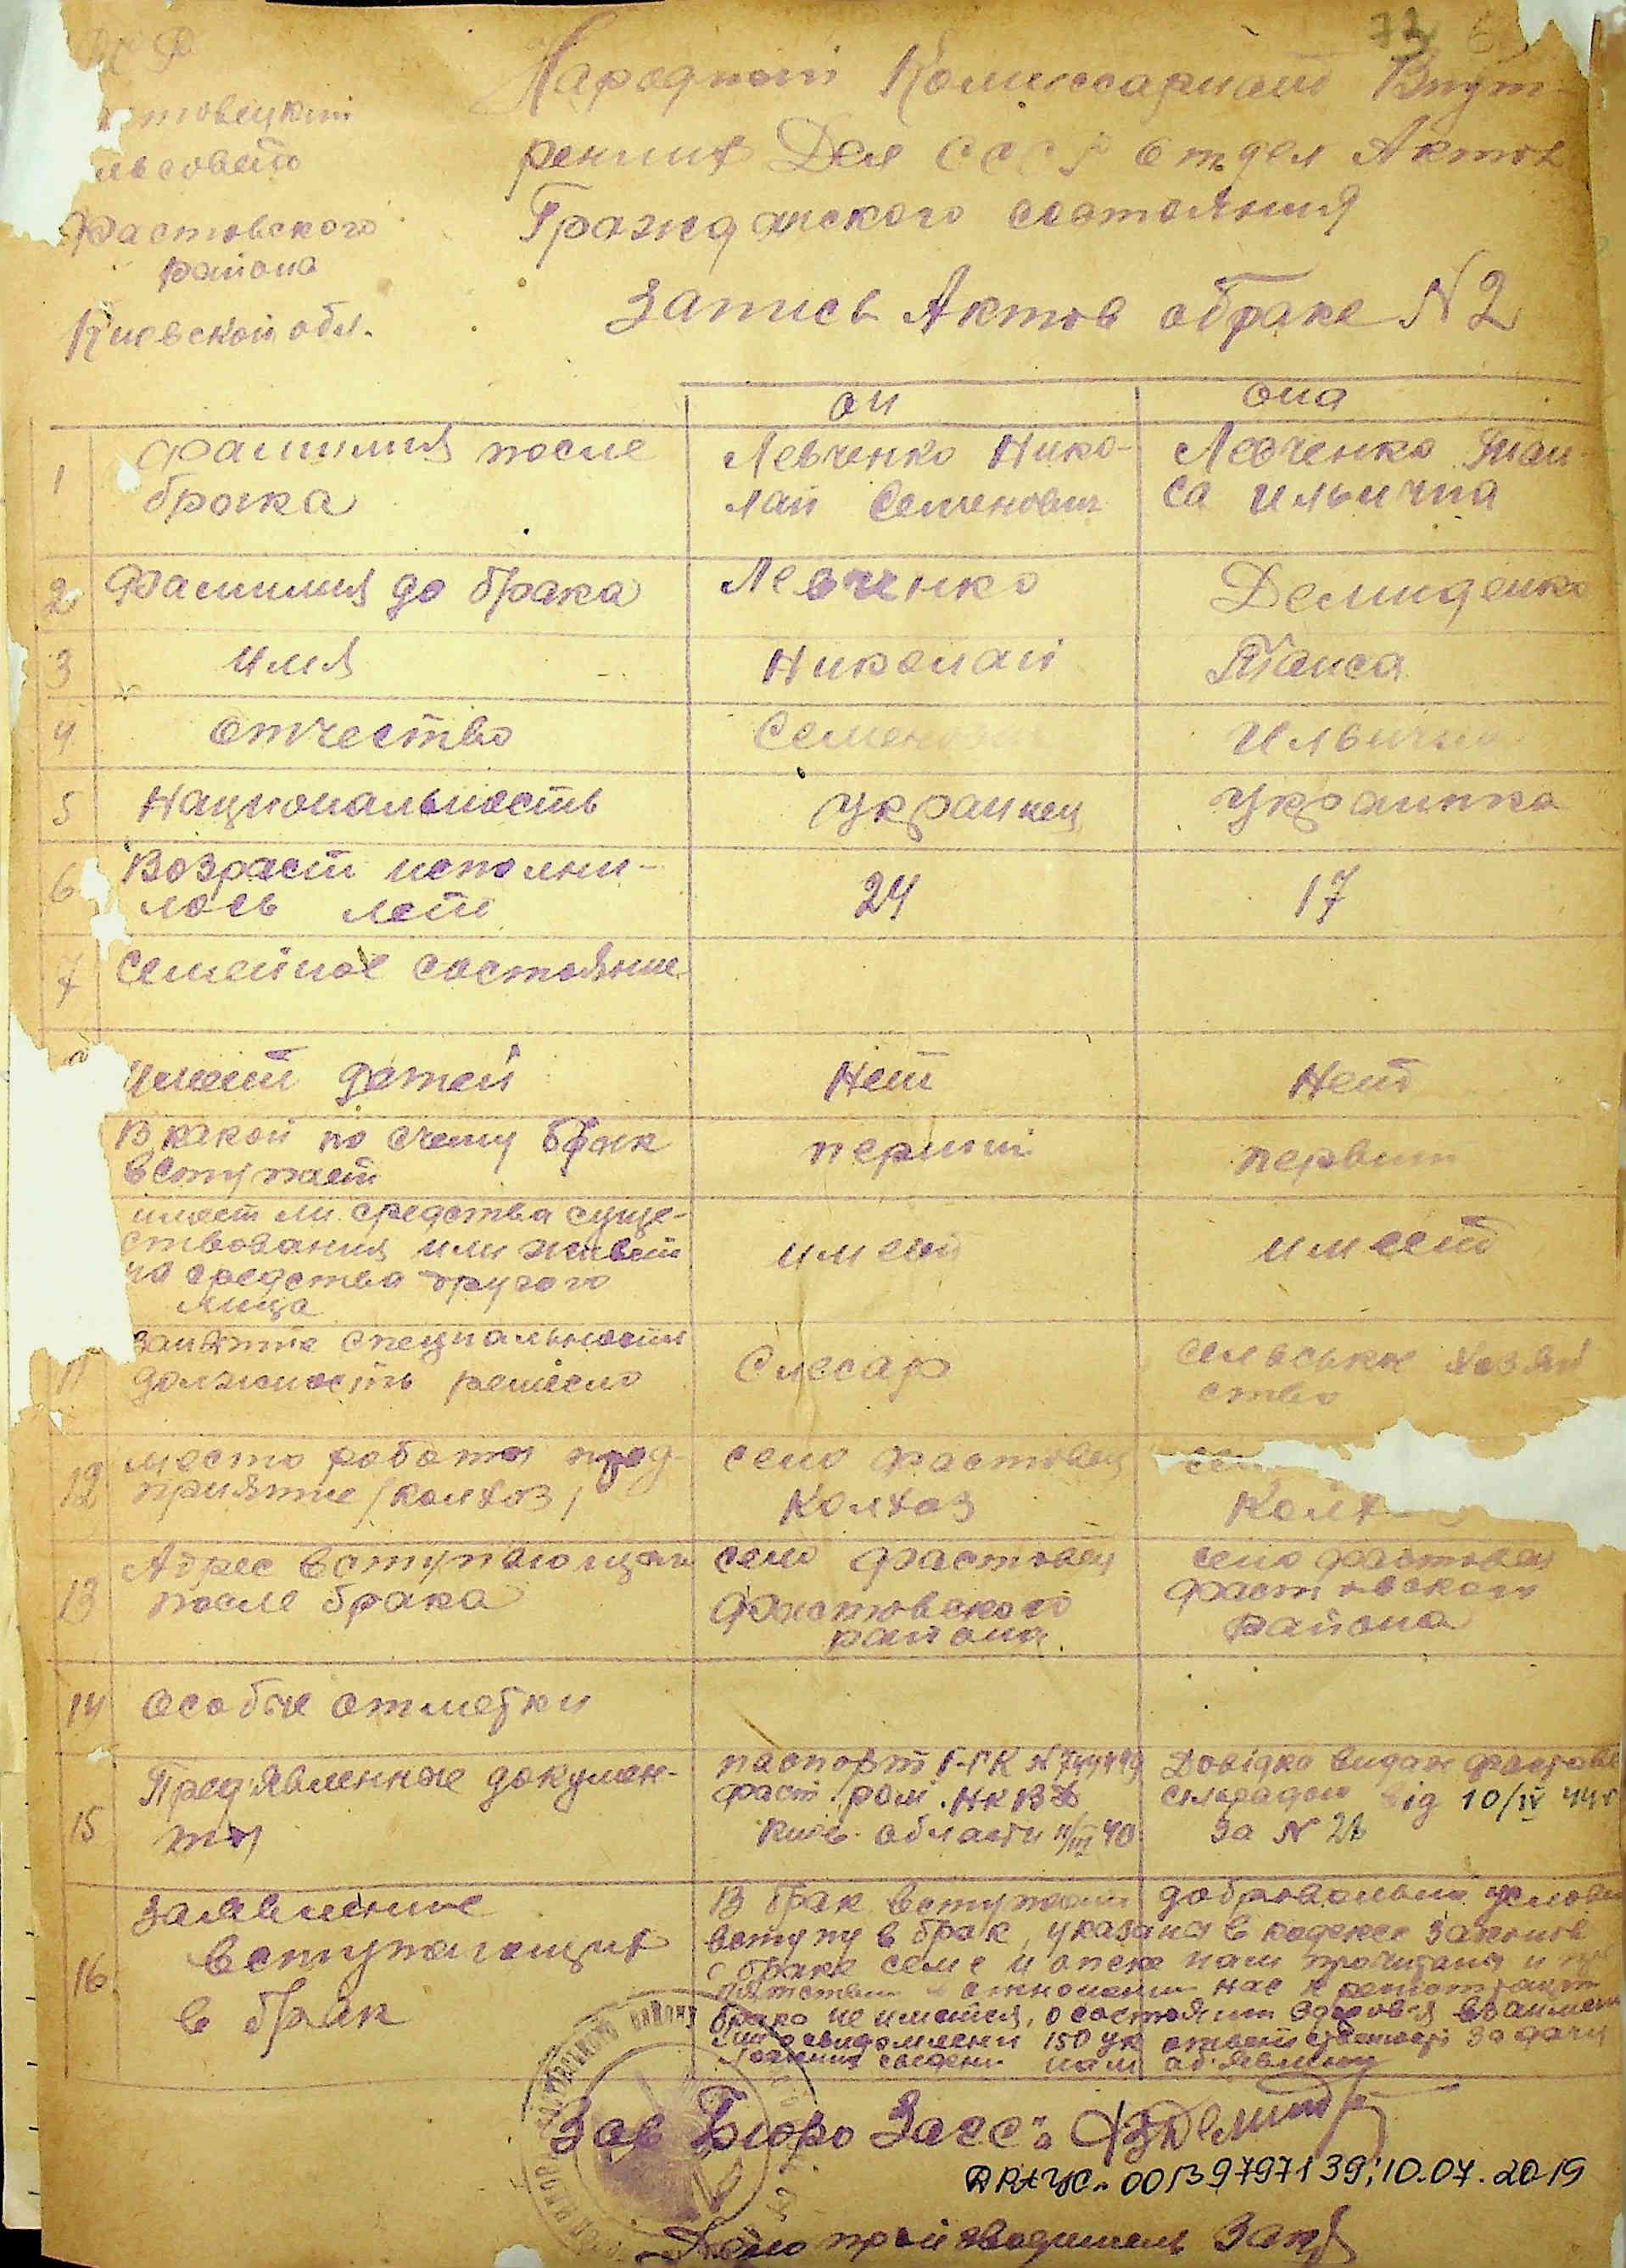 73
Народний Комиссариат Внут-
ренних Дел СССР Отдел Актов
Гражданского состояния
Фастовского
района
Киевской обл.
Запись Актов о браке N 2
он
она
1
Фамилия после
брака
Левченко Нико-
лай Семенович
Левченко Таи-
са Ильична
2
Фамилия до брака
Левченко
Демиденко
3
Имя
Николай
Таиса
4
Отчество
Ильична
5
Национальность
украинец
украинка
6
Возраст исполни-
лось лет
24
17
7
Семейное состояние
имеет детей
Нет
Нет
В какой по счету брак
вступает
перший
первый
имеет ли средства суще-
ствования или живет
на средства другого
лица
имеет
имеет
11
Занятие специальность
должность ремесло
Слесар
сельське хозяй
ство
12
место работы пред-
приятие /колхоз/
село Фастовец
Колхоз
13
Адрес вступающих
после брака
село Фастовец
Фастовского
района
село Фастовец
Фастовского
района
14
Особые отметки
15
Пред'явленные докумен-
ты
паспорт
Фаст. рай. НКВД
Киев. области 11/III 40
Довідка видана
від 10/IV 44 г
за N
16
Заявление
вступающих
в брак
В брак вступаем добровольно условия
вступу в брак, указаны в кодексе законов
о браке семе и опеке нам прочитаны и
в отношении нас к регистрации
брака не имеется, о состоянии здоровя взаимно
150 ук ответственность за дачу
сведени нам об'явлено
Зав Бюро Загс:
ДРАЦС: 00139797139; 10.07.2019
Дело производитель